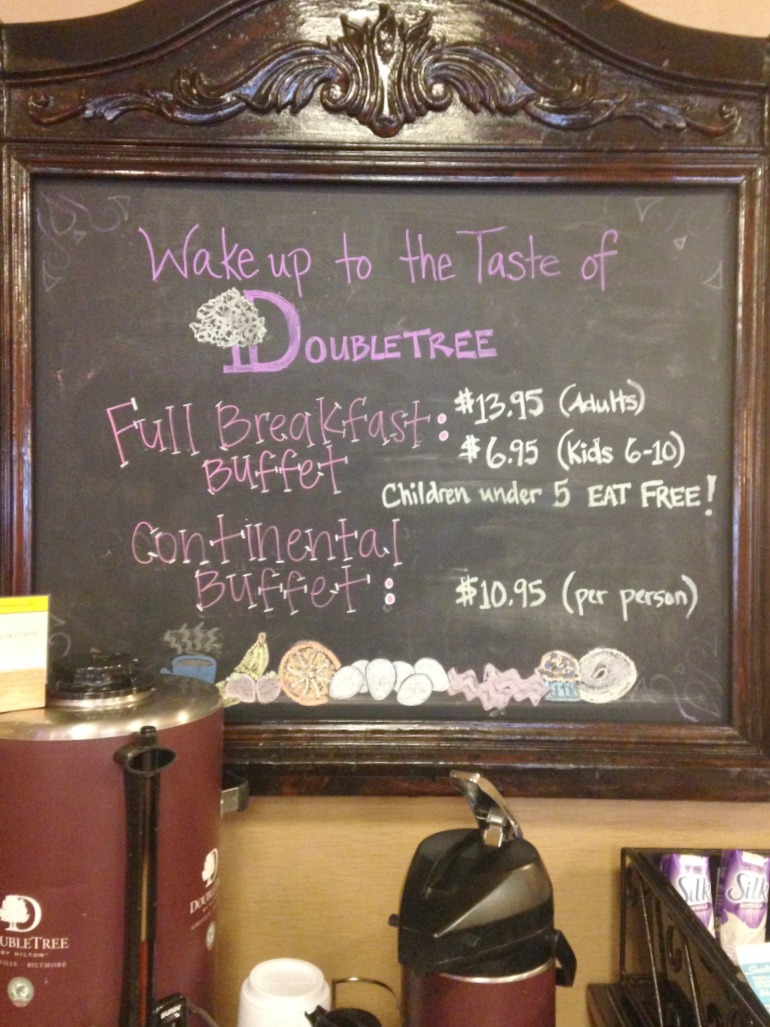 Wake up to the Taste of
DOUBLETREE
Full Breakfast: $13.95 (Adults)
Buffet $6.95 (Kids 6-10)
Children under 5 EAT FREE!
Continental
Buffet: $10.95 (per person)
DOU
UBLETREE
BY HILTON
VILLE - BILTMORE
Silk
Silk